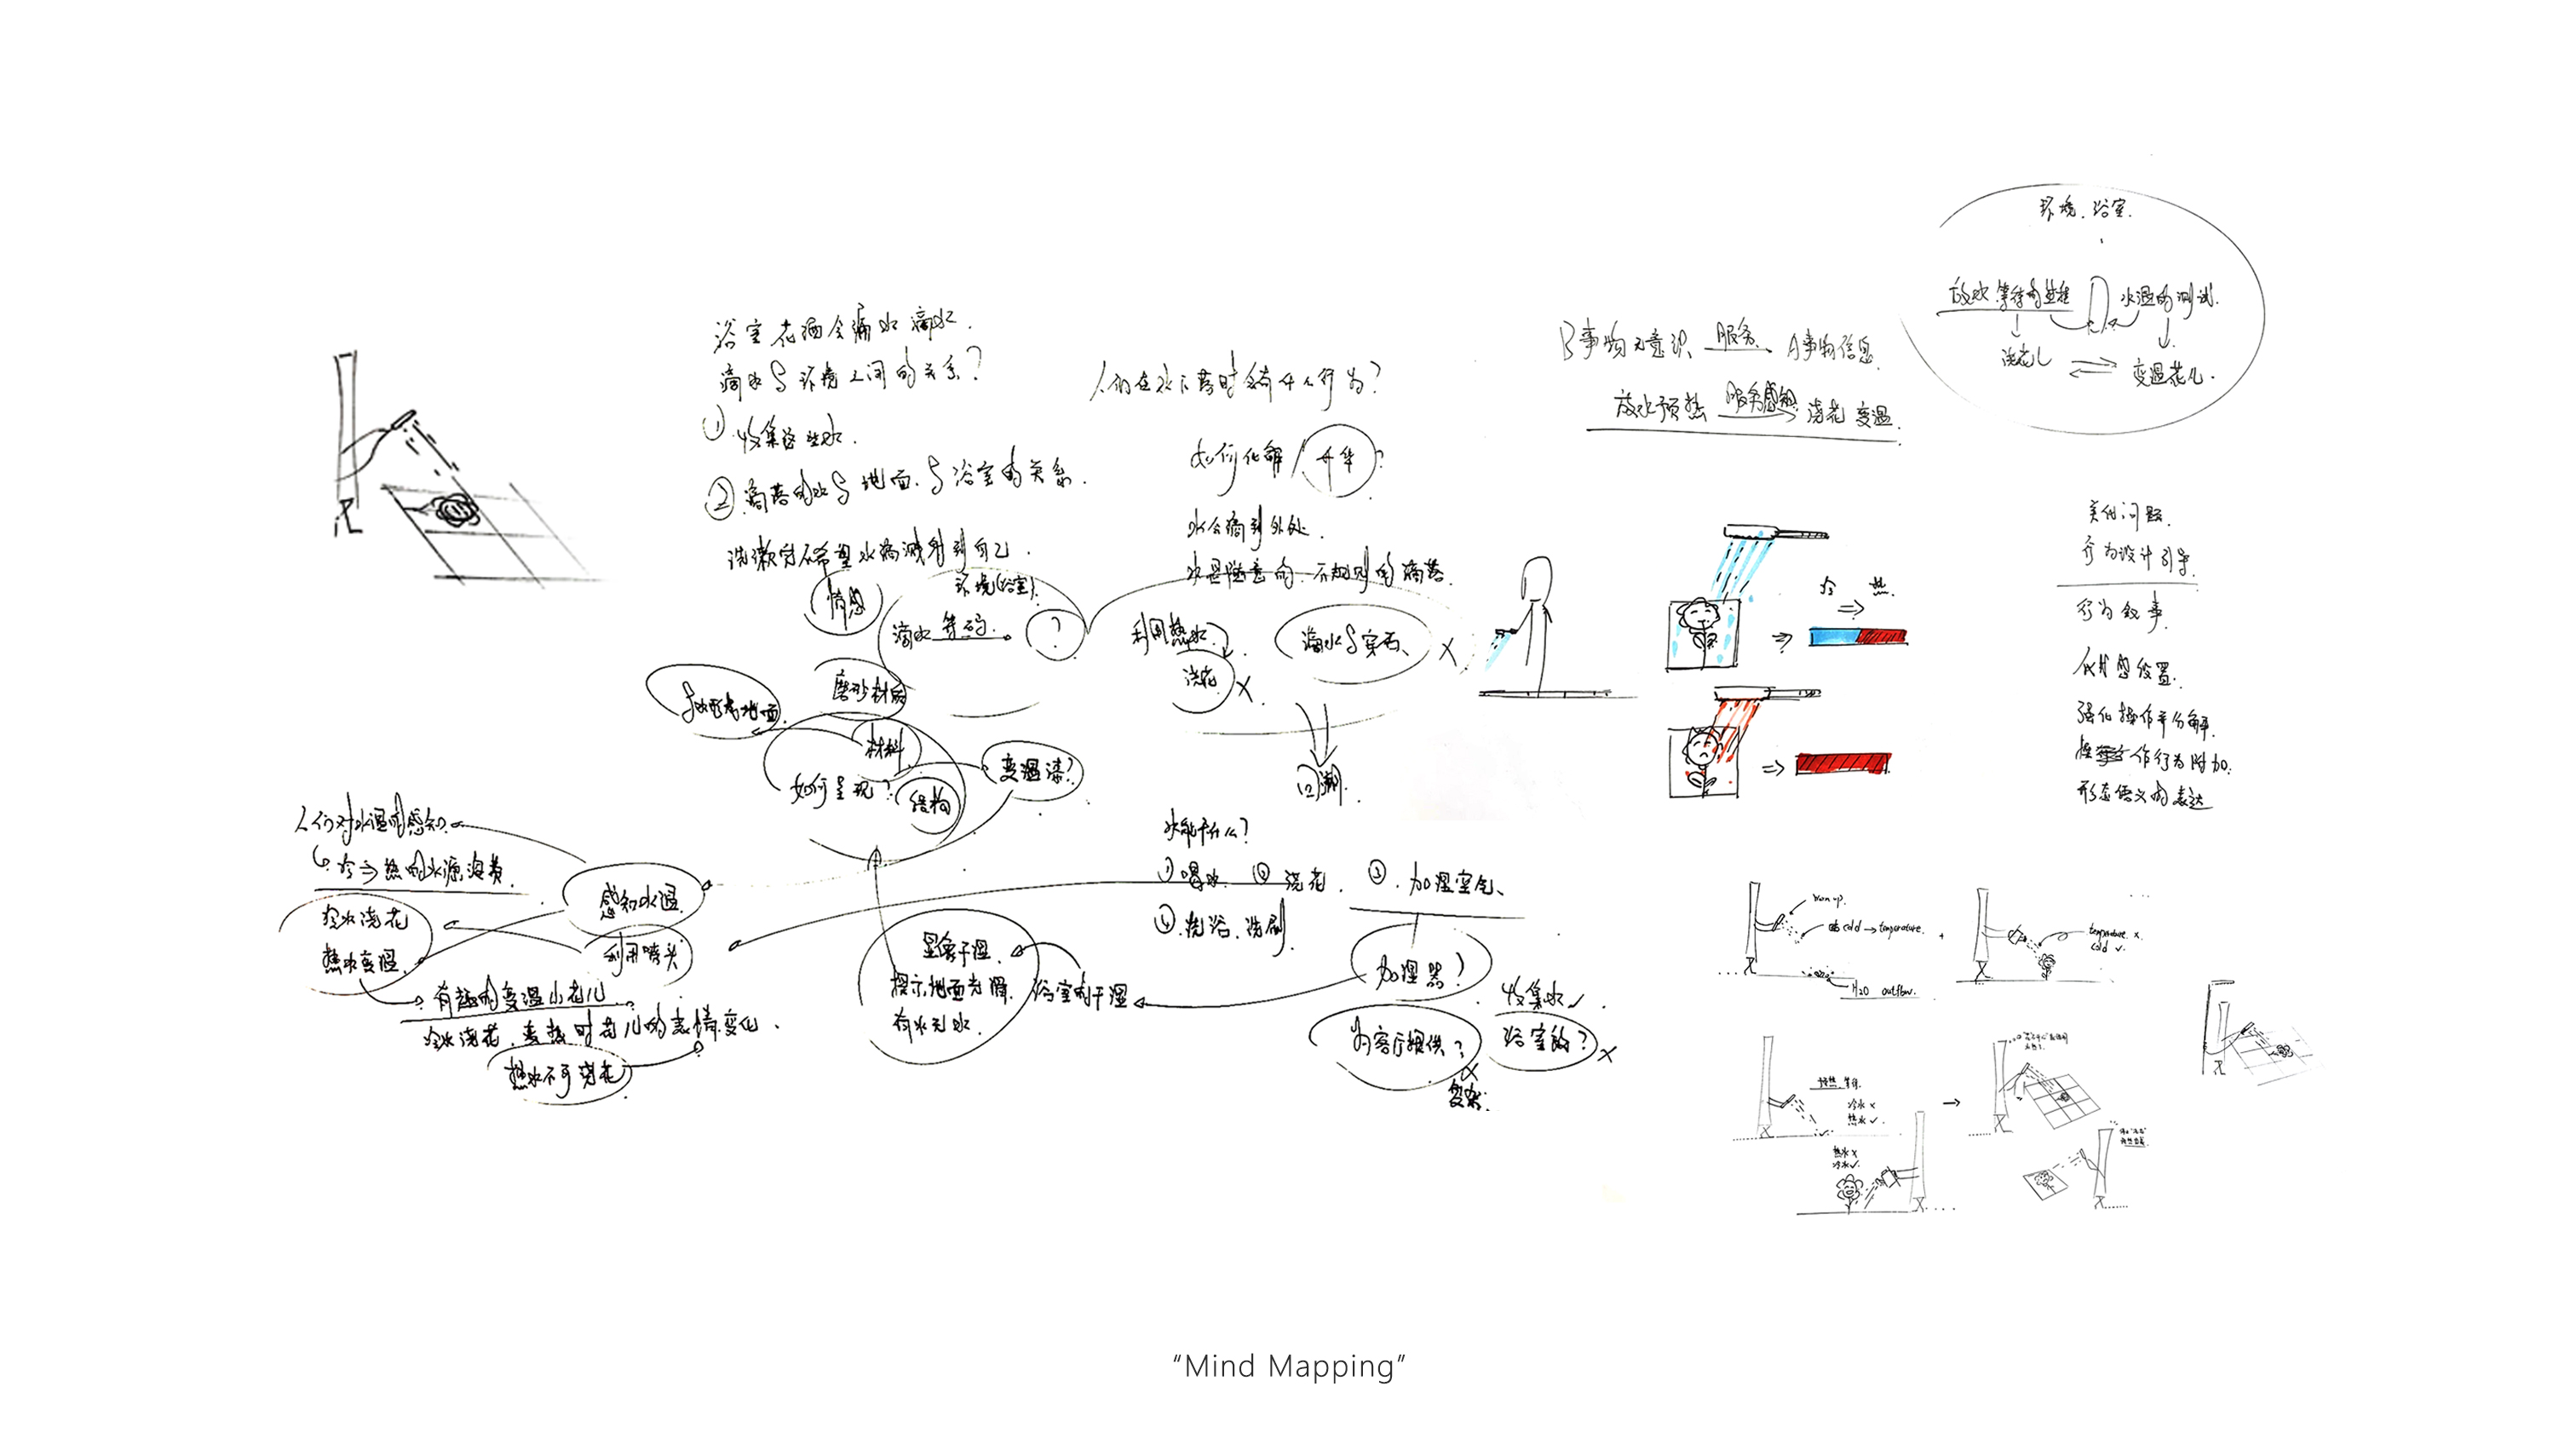 浴室花洒会漏水滴水.
滴水与环境之间的关系?
① 收集这些水.
② 滴落的水与地面.与浴室的关系.
洗漱完不希望水滴溅射到自己.
情感
环境(浴室).
滴水 等的. ?
磨砂材质
材料
如何呈现?
结构
变温漆?
人们在水下落时会有什么行为?
如何化解
水会滴到外处.
水是随意的.不规则的滴落.
利用热水?
浇花 X
滴水与穿石、 X
回溯.
人们对水温的感知.
↳ 冷⇒热的水源浪费.
感知水温.
冷水浇花
热水变温.
利用喷头
有趣的变温小花儿
冷水浇花.变热时花儿的表情变化.
热水不可浇花
显像干湿.
提示地面光滑.
有水无水.
浴室的干湿
水能干什么?
① 喝水. ② 浇花. ③. 加湿空气、
④.洗浴.洗刷.
加湿器?
收集水✓.
为客厅提供? X
浴室的? X
复杂.
B事物无意识 服务 A事物信息.
放水预热 服务感知 浇花 变温.
环境.浴室.
放水 等待的过程
水温的测试.
浇花儿 变温花儿.
冷 ⇒ 热.
美化问题.
行为设计引导.
行为叙事.
强化操作半分解.
作行为附加.
形态语义的表达
cold → temperature.
H2O outflow.
temperature. x
cold ✓.
预热 等待.
冷水 x
热水 ✓.
热水 x
冷水 ✓.
“Mind Mapping”